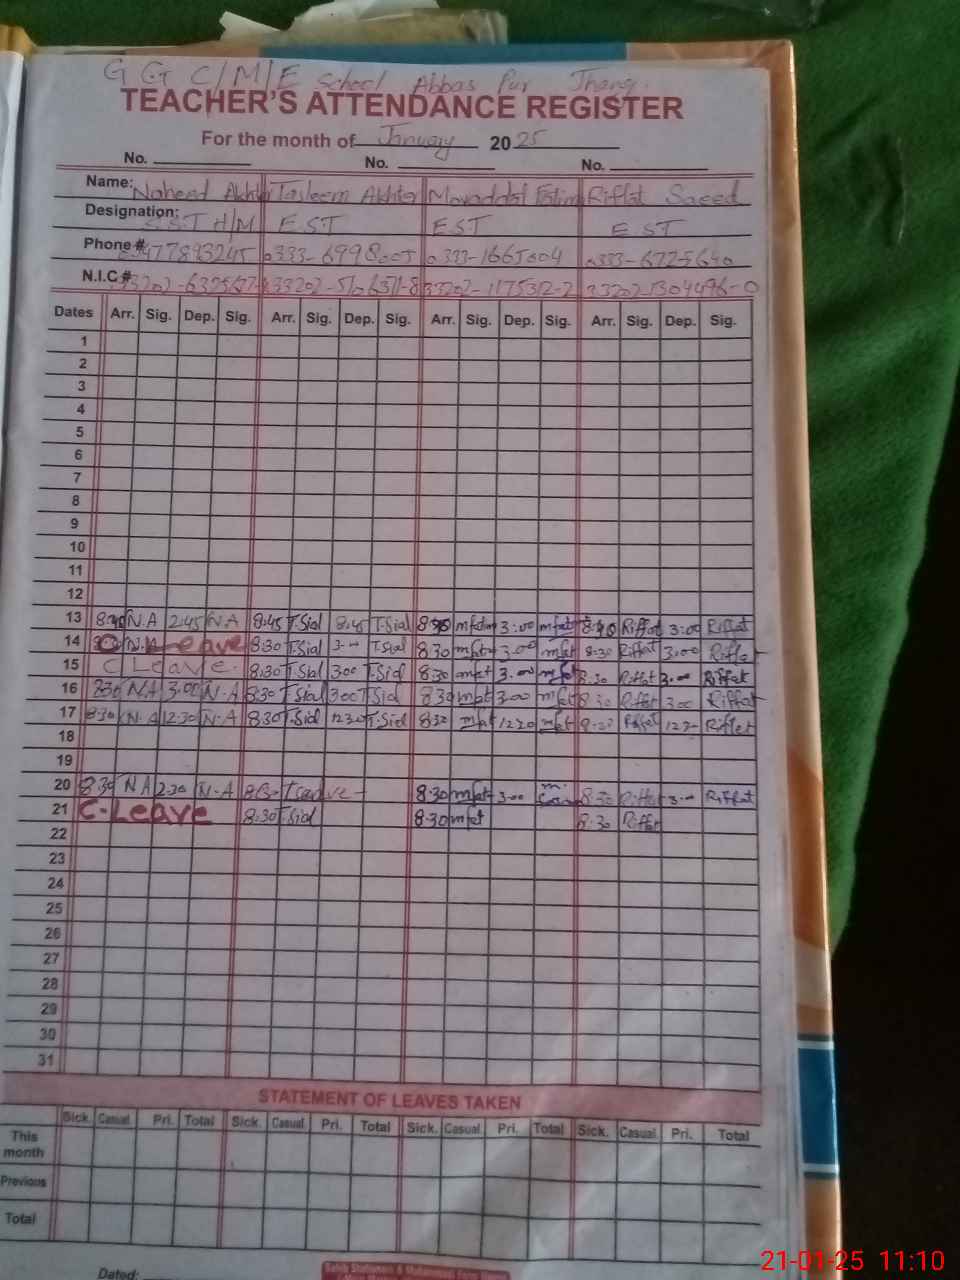 G G C/M/E School Abbas Pur Jhang.
TEACHER'S ATTENDANCE REGISTER
For the month of January 2025
No. No. No.
Name: Naheed Akhtar Tasleem Akhter Mawaddat Fatim Riffat Saeed
Designation: S.S.T H/M E.S.T E.S.T E.S.T
Phone # 0333-1665004
N.I.C #
Dates Arr. Sig. Dep. Sig. Arr. Sig. Dep. Sig. Arr. Sig. Dep. Sig. Arr. Sig. Dep. Sig.
1
2
3
4
5
6
7
8
9
10
11
12
13 N.A 2:45 N.A 8:45 T.Sial T.Sial 3:00 Riffat 3:00 Riffat
14 C Leave 8:30 T.Sial 3.00 T.Sial 8:30 3.00 mfat 8:30 Riffat 3:00 Riffat
15 C Leave. 8:30 T.Sial 3.00 T.Sial 8:30 mfat 3.00 mfat 8:30 Riffat 3.00 Riffat
16 8:30 N.A 3.00 N.A 8:30 T.Sial 3.00 T.Sial 8:30 mfat 3.00 mfat 8:30 Riffat 3.00 Riffat
17 8:30 N.A 12.30 N.A 8:30 T.Sial 12.30 T.Sial 8:30 mfat 12.30 mfat 8:30 Riffat Riffat
18
19
20 8:30 N A 2:30 N.A 8:30 mfat 3.00 8:30 Riffat 3.00 Riffat
21 C-Leave 8:30 T.Sial 8:30 mfat 8:30 Riffat
22
23
24
25
26
27
28
29
30
31
STATEMENT OF LEAVES TAKEN
Sick. Casual Pri. Total Sick. Casual. Pri. Total Sick. Casual. Pri. Total Sick. Casual. Pri. Total
This month
Previous
Total
Dated:
21-01-25 11:10